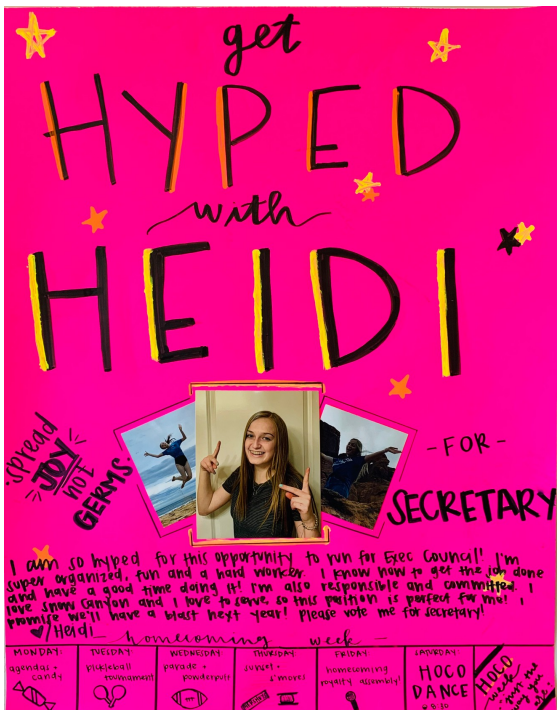 get
HYPED
with
HEIDI
spread
JOY
not
GERMS
-FOR-
SECRETARY
I am so hyped for this opportunity to run for Exec Council! I'm
super organized, fun and a hard worker. I know how to get the job done
and have a good time doing it! I'm also responsible and committed. I
love Snow Canyon and I love to serve, so this position is perfect for me! I
promise we'll have a blast next year! Please vote me for secretary!
Heidi
homecoming week-
MONDAY:
agendas +
candy
TUESDAY:
pickleball
tournament!
WEDNESDAY:
parade +
powderpuff
THURSDAY:
sunset +
s'mores
FRIDAY:
homecoming
royalty assembly!
SATURDAY:
HOCO
DANCE
HOCO
week
you